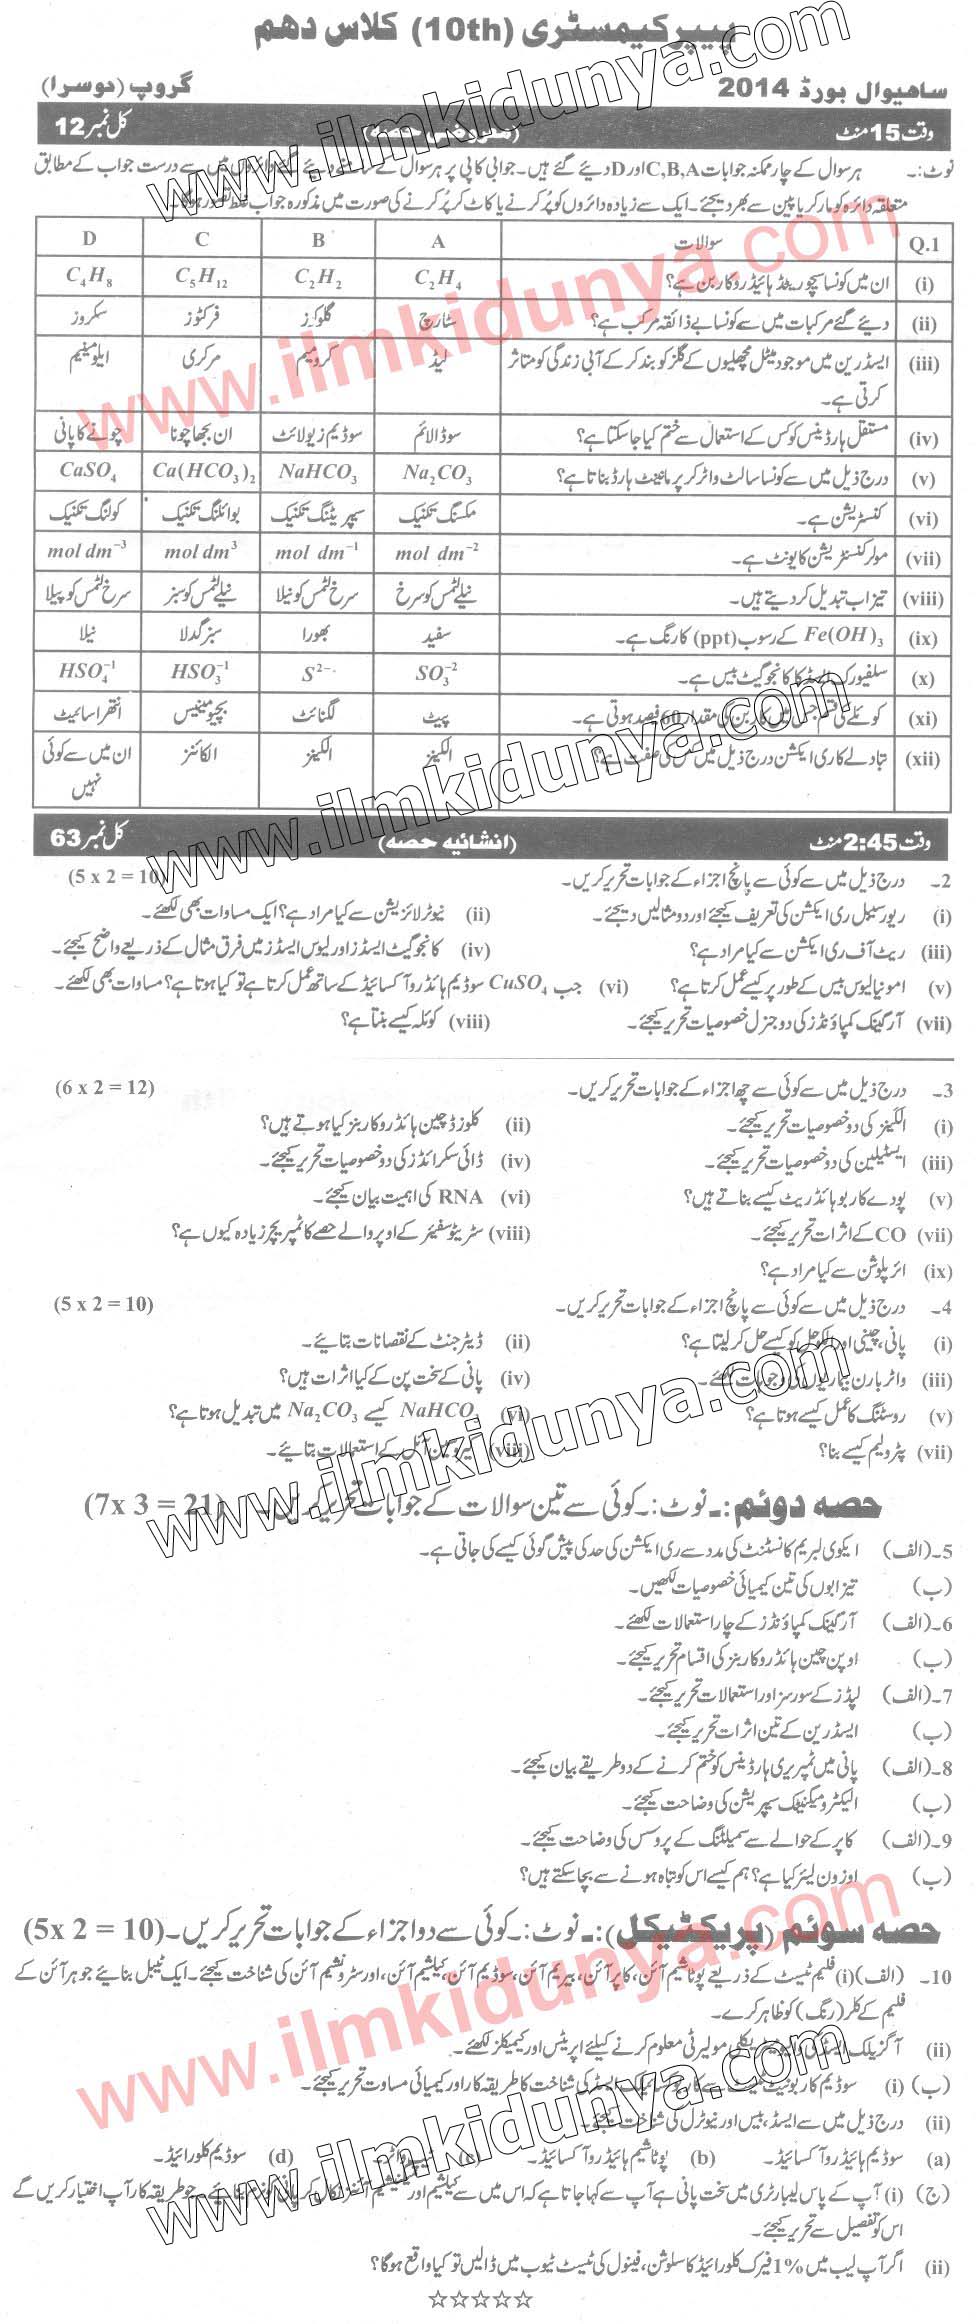 پیپر کیمسٹری (10th) کلاس دہم
ساھیوال بورڈ 2014 گروپ (دوسرا)
وقت 15 منٹ (معروضی حصہ) کل نمبر 12
نوٹ:۔ ہر سوال کے چار ممکنہ جوابات C,B,A اور D دیئے گئے ہیں۔ جوابی کاپی پر ہر سوال کے سامنے دیئے گئے دائروں میں سے درست جواب کے مطابق
متعلقہ دائرہ کو مارکر یا پین سے بھر دیجئے۔ ایک سے زیادہ دائروں کو پُر کرنے یا کاٹ کر پُر کرنے کی صورت میں مذکورہ جواب غلط تصور ہوگا۔
Q.1 سوالات A B C D
(i) ان میں کونسا سیچوریٹڈ ہائیڈروکاربن ہے؟ C₂H₄ C₂H₂ C₅H₁₂ C₄H₈
(ii) دیئے گئے مرکبات میں سے کونسا بے ذائقہ مرکب ہے؟ سٹارچ گلوکوز فرکٹوز سکروز
(iii) ایسڈرین میں موجود میٹل مچھلیوں کے گلز کو بند کر کے آبی زندگی کو متاثر کرتی ہے۔ لیڈ کرومیم مرکری ایلومینیم
(iv) مستقل ہارڈنیس کو کس کے استعمال سے ختم کیا جاسکتا ہے؟ سوڈا لائم سوڈیم زیولائٹ ان بجھا چونا چونے کا پانی
(v) درج ذیل میں سے کونسا سالٹ واٹر کو پرماننٹ ہارڈ بناتا ہے؟ Na₂CO₃ NaHCO₃ Ca(HCO₃)₂ CaSO₄
(vi) کنسنٹریشن ہے۔ مکسنگ تکنیک سیپریٹنگ تکنیک بوائلنگ تکنیک کولنگ تکنیک
(vii) مولر کنسنٹریشن کا یونٹ ہے۔ mol dm⁻² mol dm⁻¹ mol dm³ mol dm⁻³
(viii) تیزاب تبدیل کر دیتے ہیں۔ نیلے لٹمس کو سرخ سرخ لٹمس کو نیلا نیلے لٹمس کو سبز سرخ لٹمس کو پیلا
(ix) Fe(OH)₃ کے رسوب (ppt) کا رنگ ہے۔ سفید بھورا سبز گدلا نیلا
(x) سلفیورک ایسڈ کا کانجوگیٹ بیس ہے۔ SO₃⁻² S²⁻ HSO₃⁻¹ HSO₄⁻¹
(xi) کوئلے کی قسم جس میں کاربن کی مقدار 60 فیصد ہوتی ہے۔ پیٹ لگنائٹ بچیومینیس انتھراسائیٹ
(xii) تبادلے کا ری ایکشن درج ذیل میں کس کی صفت ہے؟ الکینز الکینز الکائنز ان میں سے کوئی نہیں
وقت 2:45 منٹ (انشائیہ حصہ) کل نمبر 63
2۔ درج ذیل میں سے کوئی سے پانچ اجزاء کے جوابات تحریر کریں۔ (5 x 2 = 10)
(i) ریورسیبل ری ایکشن کی تعریف کیجئے اور دو مثالیں دیجئے۔ (ii) نیوٹرلائزیشن سے کیا مراد ہے؟ ایک مساوات بھی لکھئے۔
(iii) ریٹ آف ری ایکشن سے کیا مراد ہے؟ (iv) کانجوگیٹ ایسڈز اور لیوس ایسڈز میں فرق مثال کے ذریعے واضح کیجئے۔
(v) امونیا لیوس بیس کے طور پر کیسے عمل کرتا ہے؟ (vi) جب CuSO₄ سوڈیم ہائڈروآکسائیڈ کے ساتھ عمل کرتا ہے تو کیا ہوتا ہے؟ مساوات بھی لکھئے۔
(vii) آرگینک کمپاؤنڈز کی دو جنرل خصوصیات تحریر کیجئے۔ (viii) کوئلہ کیسے بنتا ہے؟
3۔ درج ذیل میں سے کوئی سے چھ اجزاء کے جوابات تحریر کریں۔ (6 x 2 = 12)
(i) الکینز کی دو خصوصیات تحریر کیجئے۔ (ii) کلوزڈ چین ہائڈروکاربنز کیا ہوتے ہیں؟
(iii) ایسٹیلین کی دو خصوصیات تحریر کیجئے۔ (iv) ڈائی سکرائڈز کی دو خصوصیات تحریر کیجئے۔
(v) پودے کاربوہائڈریٹ کیسے بناتے ہیں؟ (vi) RNA کی اہمیت بیان کیجئے۔
(vii) CO کے اثرات تحریر کیجئے۔ (viii) سٹریٹوسفیئر کے اوپر والے حصے کا ٹمپریچر زیادہ کیوں ہے؟
(ix) ائر پلوشن سے کیا مراد ہے؟
4۔ درج ذیل میں سے کوئی سے پانچ اجزاء کے جوابات تحریر کریں۔ (5 x 2 = 10)
(i) پانی، چینی اور الکوحل کو کیسے حل کر لیتا ہے؟ (ii) ڈیٹرجنٹ کے نقصانات بتائیے۔
(iii) واٹر بارن بیماریوں کی وجوہات لکھئے۔ (iv) پانی کے سخت پن کے کیا اثرات ہیں؟
(v) روسٹنگ کا عمل کیسے ہوتا ہے؟ (vi) NaHCO₃ کیسے Na₂CO₃ میں تبدیل ہوتا ہے؟
(vii) پٹرولیم کیسے بنا؟ (viii) کیروسین آئل کے استعمالات بتائیے۔
حصہ دوئم :۔ نوٹ:۔ کوئی سے تین سوالات کے جوابات تحریر کریں۔ (7x 3 = 21)
5۔ (الف) ایکوی لبریم کانسٹنٹ کی مدد سے ری ایکشن کی حد کی پیش گوئی کیسے کی جاتی ہے۔
(ب) تیزابوں کی تین کیمیائی خصوصیات لکھیں۔
6۔ (الف) آرگینک کمپاؤنڈز کے چار استعمالات لکھئے۔
(ب) اوپن چین ہائڈروکاربنز کی اقسام تحریر کیجئے۔
7۔ (الف) لپڈز کے سورسز اور استعمالات تحریر کیجئے۔
(ب) ایسڈرین کے تین اثرات تحریر کیجئے۔
8۔ (الف) پانی میں ٹمپریری ہارڈنیس کو ختم کرنے کے دو طریقے بیان کیجئے۔
(ب) الیکٹرومیگنیٹک سیپریشن کی وضاحت کیجئے۔
9۔ (الف) کاپر کے حوالے سے سمیلٹنگ کے پروسس کی وضاحت کیجئے۔
(ب) اوزون لیئر کیا ہے؟ ہم کیسے اس کو تباہ ہونے سے بچا سکتے ہیں؟
حصہ سوئم (پریکٹیکل):۔ نوٹ:۔ کوئی سے دو اجزاء کے جوابات تحریر کریں۔ (5x 2 = 10)
10۔ (الف) (i) فلیم ٹیسٹ کے ذریعے پوٹاشیم آئن، کاپر آئن، بیریم آئن، سوڈیم آئن، کیلشیم آئن، اور سٹرونشیم آئن کی شناخت کیجئے۔ ایک ٹیبل بنائیے جو ہر آئن کے
فلیم کے کلر (رنگ) کو ظاہر کرے۔
(ii) آگزیلک ایسڈ کی مولیرٹی معلوم کرنے کیلئے اپریٹس اور کیمیکلز لکھئے۔
(ب) (i) سوڈیم کاربونیٹ ٹیسٹ سے کاربوآکسیلک ایسڈ کی شناخت کا طریقہ کار اور کیمیائی مساوت تحریر کیجئے۔
(ii) درج ذیل میں سے ایسڈ، بیس اور نیوٹرل کی شناخت کیجئے۔
(a) سوڈیم ہائیڈروآکسائیڈ۔ (b) پوٹاشیم ہائیڈروآکسائیڈ۔ (c) (d) سوڈیم کلورائیڈ۔
(ج) (i) آپ کے پاس لیبارٹری میں سخت پانی ہے آپ سے کہا جاتا ہے کہ اس میں سے کیلشیم اور میگنیشیم آئنز نکال کر پانی کو نرم بنائیے۔ جو طریقہ کار آپ اختیار کریں گے
اس کو تفصیل سے تحریر کیجئے۔
(ii) اگر آپ لیب میں 1% فیرک کلورائیڈ کا سلوشن، فینول کی ٹیسٹ ٹیوب میں ڈالیں تو کیا واقع ہوگا؟
☆☆☆☆☆
www.ilmkidunya.com
www.ilmkidunya.com
www.ilmkidunya.com
www.ilmkidunya.com
www.ilmkidunya.com
www.ilmkidunya.com